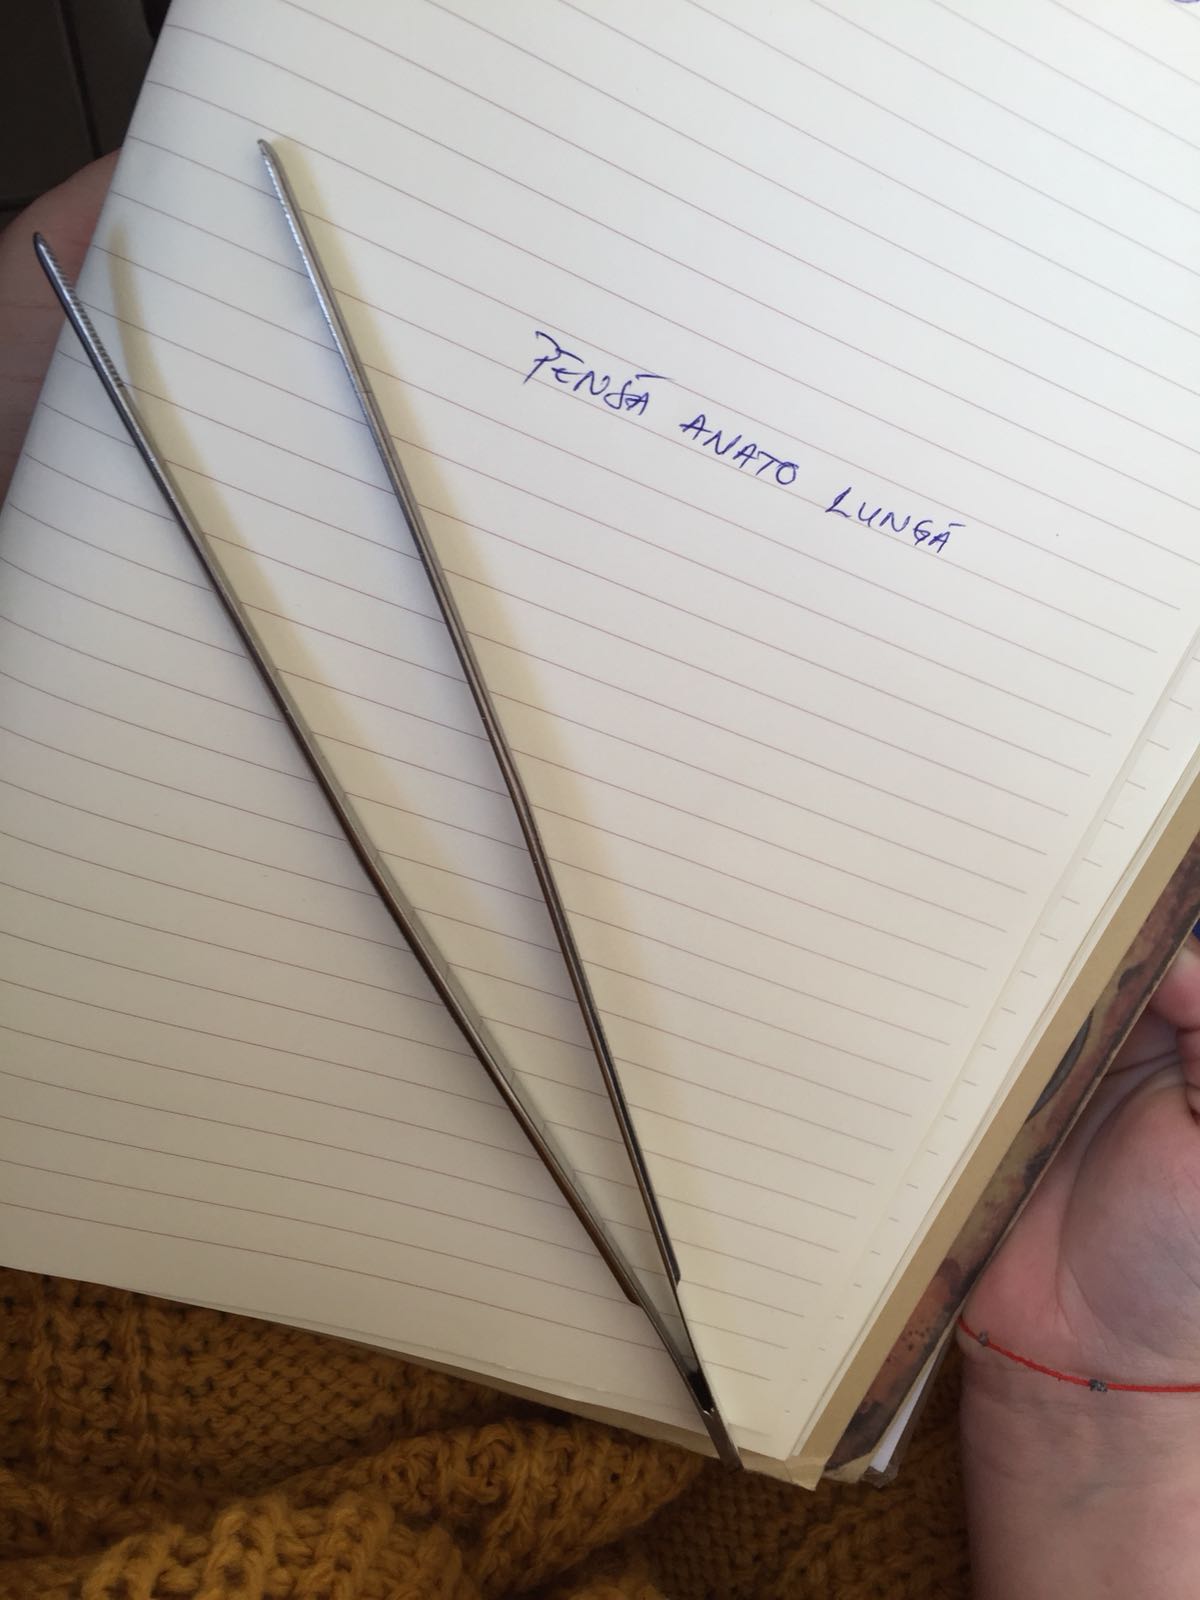 PENSĂ ANATO LUNGĂ